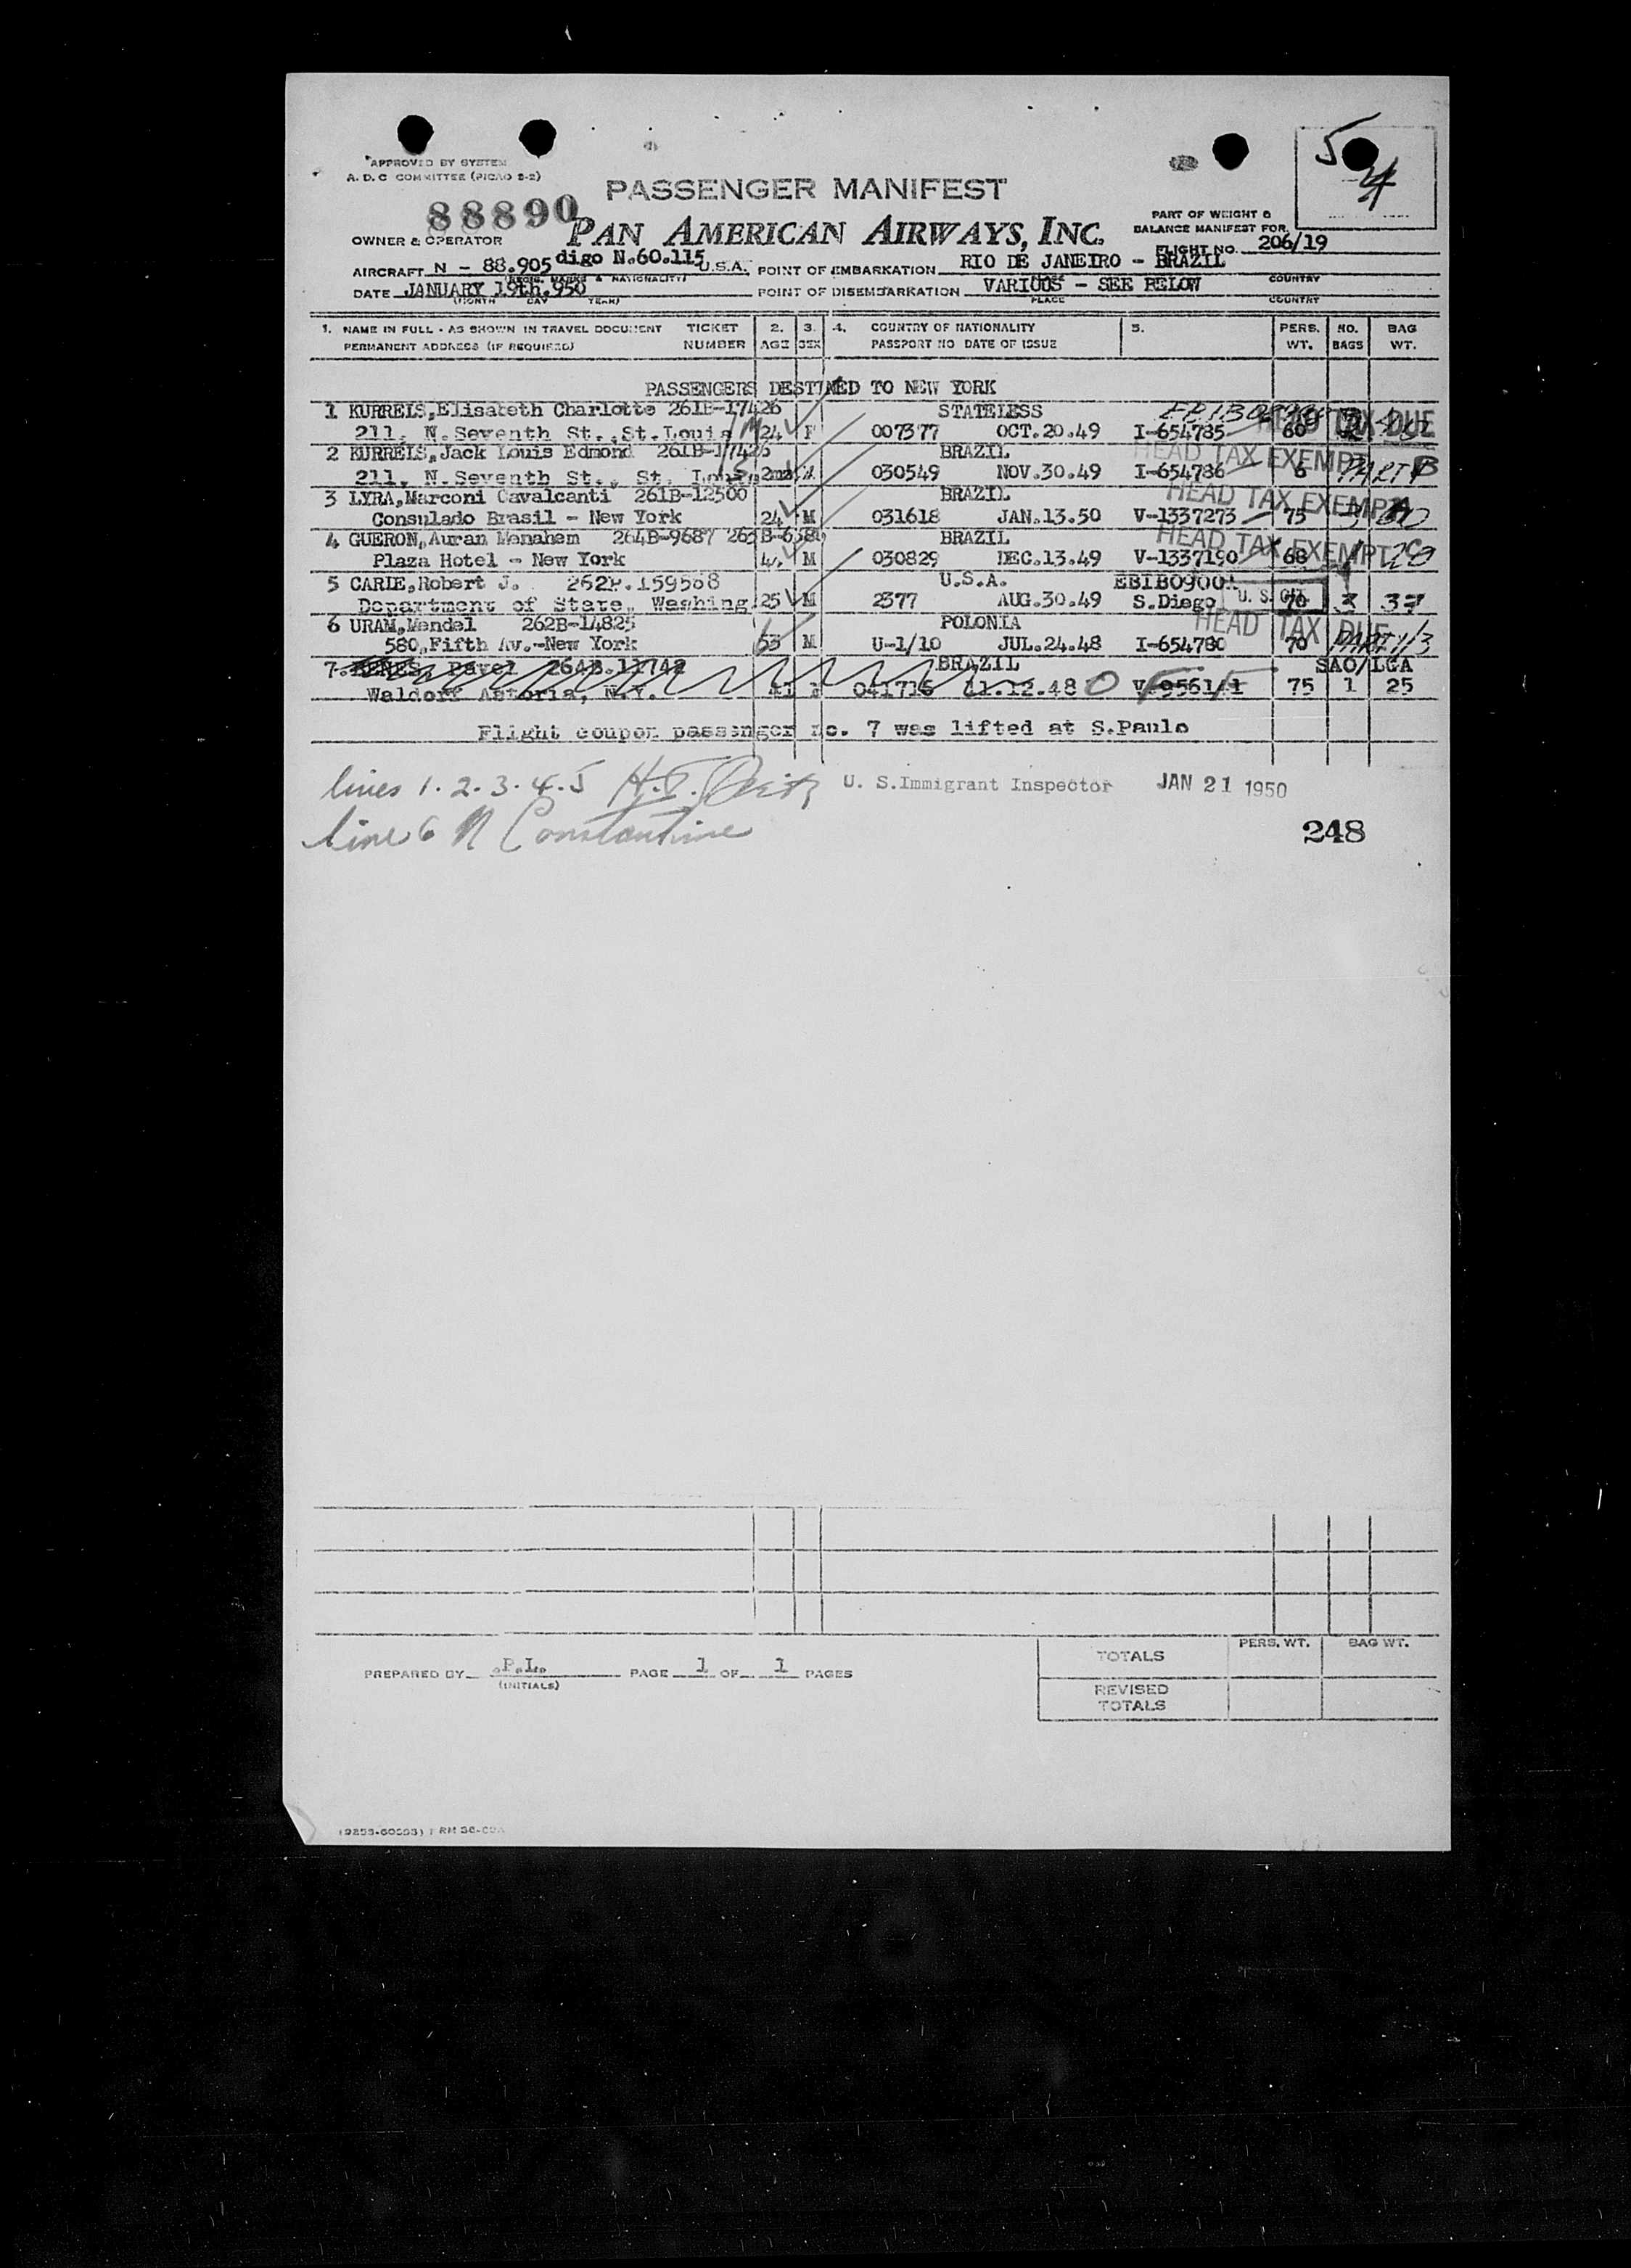 APPROVED BY SYSTEM
A. D. C COMMITTEE (PICAO S-2)
5
4
PASSENGER MANIFEST
88890
PAN AMERICAN AIRWAYS, INC.
PART OF WEIGHT &
BALANCE MANIFEST FOR
FLIGHT NO. 206/19
OWNER & OPERATOR
AIRCRAFT N - 88.905 digo N.60.115 U.S.A. POINT OF EMBARKATION RIO DE JANEIRO - BRAZIL
(REGIS. MARKS & NATIONALITY) COUNTRY
DATE JANUARY 19th.950 POINT OF DISEMBARKATION VARIOUS - SEE BELOW
(MONTH DAY YEAR) PLACE COUNTRY
1. NAME IN FULL - AS SHOWN IN TRAVEL DOCUMENT TICKET 2. 3. 4. COUNTRY OF NATIONALITY 5. PERS. NO. BAG
PERMANENT ADDRESS (IF REQUIRED) NUMBER AGE SEX PASSPORT NO DATE OF ISSUE WT. BAGS WT.
PASSENGERS DESTINED TO NEW YORK
1 KURREIS,Elisabeth Charlotte 261B-17426 STATELESS HEAD TAX DUE
211, N.Seventh St.,St.Louis 24 F 007377 OCT.20.49 I-654785 60
2 KURREIS,Jack Louis Edmond 261B-17426 BRAZIL HEAD TAX EXEMPT
211, N.Seventh St., St. 030549 NOV.30.49 I-654786 6
3 LYRA,Marconi Cavalcanti 261B-12500 BRAZIL HEAD TAX EXEMPT
Consulado Brasil - New York 24 M 031618 JAN.13.50 V-1337273 75
4 GUERON,Auran Menahem 264B-9687 BRAZIL HEAD TAX EXEMPT
Plaza Hotel - New York M 030829 DEC.13.49 V-1337190 68 1 28
5 CARLE,Robert J. 262B.159568 U.S.A.
Department of State, Washing. 25 M 2377 AUG.30.49 S.Diego U. S. CIT. 70 37
6 URAM,Mendel 262B-14825 POLONIA HEAD TAX DUE
580,Fifth Av.-New York 53 M U-1/10 JUL.24.48 I-654780 70
7. Pavel 264B.11742 BRAZIL SAO/LGA
Waldorf Astoria, N.Y. 41 041716 11.12.48 OFF 75 1 25
Flight coupon passenger no. 7 was lifted at S.Paulo
lines 1.2.3.4.5 H.T. U. S.Immigrant Inspector JAN 21 1950
line 6 N Constantine
248
PREPARED BY .P.L. PAGE 1 OF 1 PAGES
(INITIALS)
PERS. WT. BAG WT.
TOTALS
REVISED
TOTALS